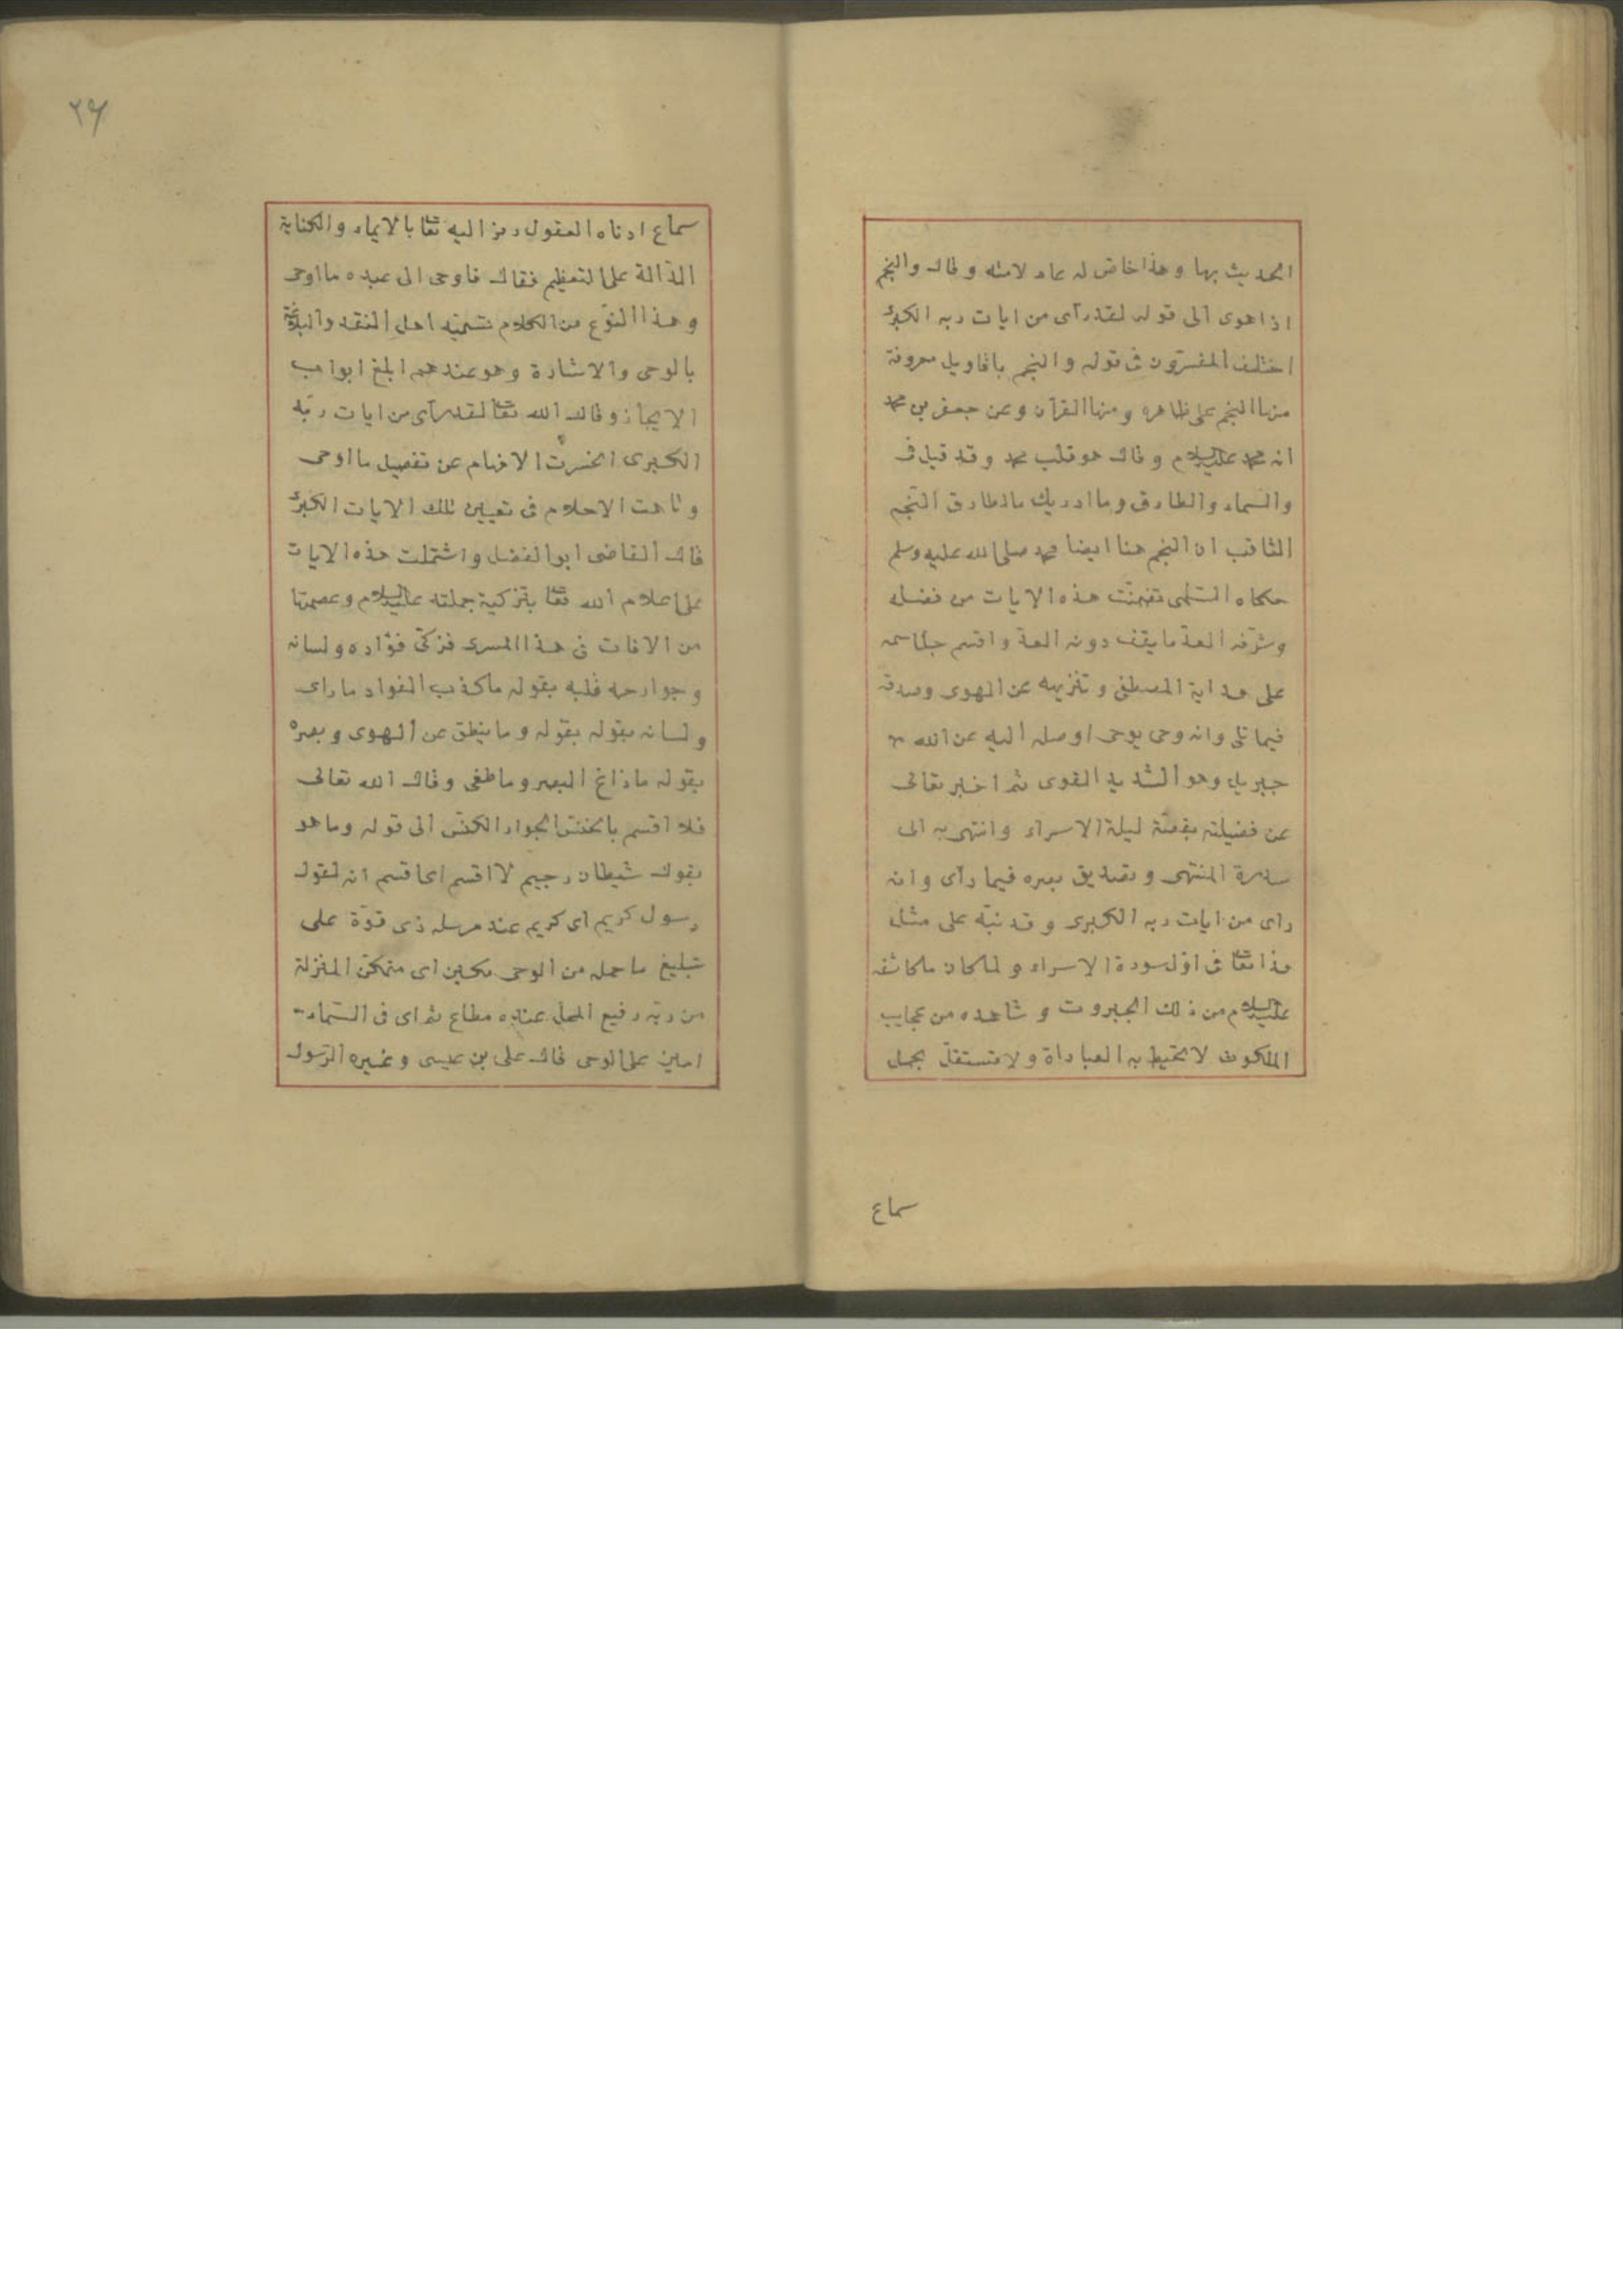 الحديث بها وهذا خاص له عام لامته وقال والنجم
اذا هوى الى قوله لقد رآى من ايات ربه الكبرى
اختلف المفسّرون فى قوله والنجم باقاويل معروفة
منها النجم على ظاهره ومنها القرآن وعن جعفر بن محمد
انه محمد عليه السلام وقال هو قلب محمد وقد قيل فى
والسماء والطارق وما ادريك ما الطارق النجم
الثاقب ان النجم هنا ايضا محمد صلى الله عليه وسلم
حكاه السّلمى تضمنت هذه الايات من فضله
وشرّفه العدّ ما يقف دونه العدّ واقسم جل اسمه
على هداية المصطفى وتنزيهه عن الهوى وصدقه
فيما تلى وانه وحى يوحى اوصله اليه عن الله
جبريل وهو الشديد القوى ثم اخبر تعالى
عن فضيلته بقصّة ليلة الاسراء وانتهى به الى
سدرة المنتهى وتصديق بصره فيما رآى وانه
راى من ايات ربه الكبرى وقد نبّه على مثل
هذا تعا فى اوّل سورة الاسراء ولما كان ما كاشفه
عليه السلام من ذلك الجبروت وشاهده من عجايب
الملكوت لا تحيط به العباراة ولا تستقلّ بحمل
سماع
٢٦
سماع ادناه العقول رمز اليه تعا بالايماء والكناية
الدّالة على التعظيم فقال فاوحى الى عبده ما اوحى
وهذا النوّع من الكلام تسميّه اهل النقد والبلاغة
بالوحى والاشارة وهو عندهم ابلغ ابواب
الايجاز وقال الله تعا لقد رآى من ايات ربّه
الكبرى انحسرت الافهام عن تفصيل ما اوحى
وتاهت الاحلام فى تعيين تلك الايات الكبرى
قال القاضى ابو الفضل واشتملت هذه الايات
على اعلام الله تعا بتزكية جملته عليه السلام وعصمتها
من الافات فى هذا المسرى فزكّى فؤاده ولسانه
وجوارحه قلبه بقوله ما كذب الفواد ما راى
ولسانه بقوله بقوله وما ينطق عن الهوى وبصره
بقوله ما زاغ البصر وما طغى وقال الله تعالى
فلا اقسم بالخنس الجوار الكنّس الى قوله وما هو
بقول شيطان رجيم لا اقسم اى اقسم انه لقول
رسول كريم اى كريم عند مرسله ذى قوّة على
تبليغ ما حمله من الوحى مكين اى متمكّن المنزلة
من ربّه رفيع المحل عنده مطاع ثم اى فى السّماء
امين على الوحى قال على بن عيسى وغيره الرّسول